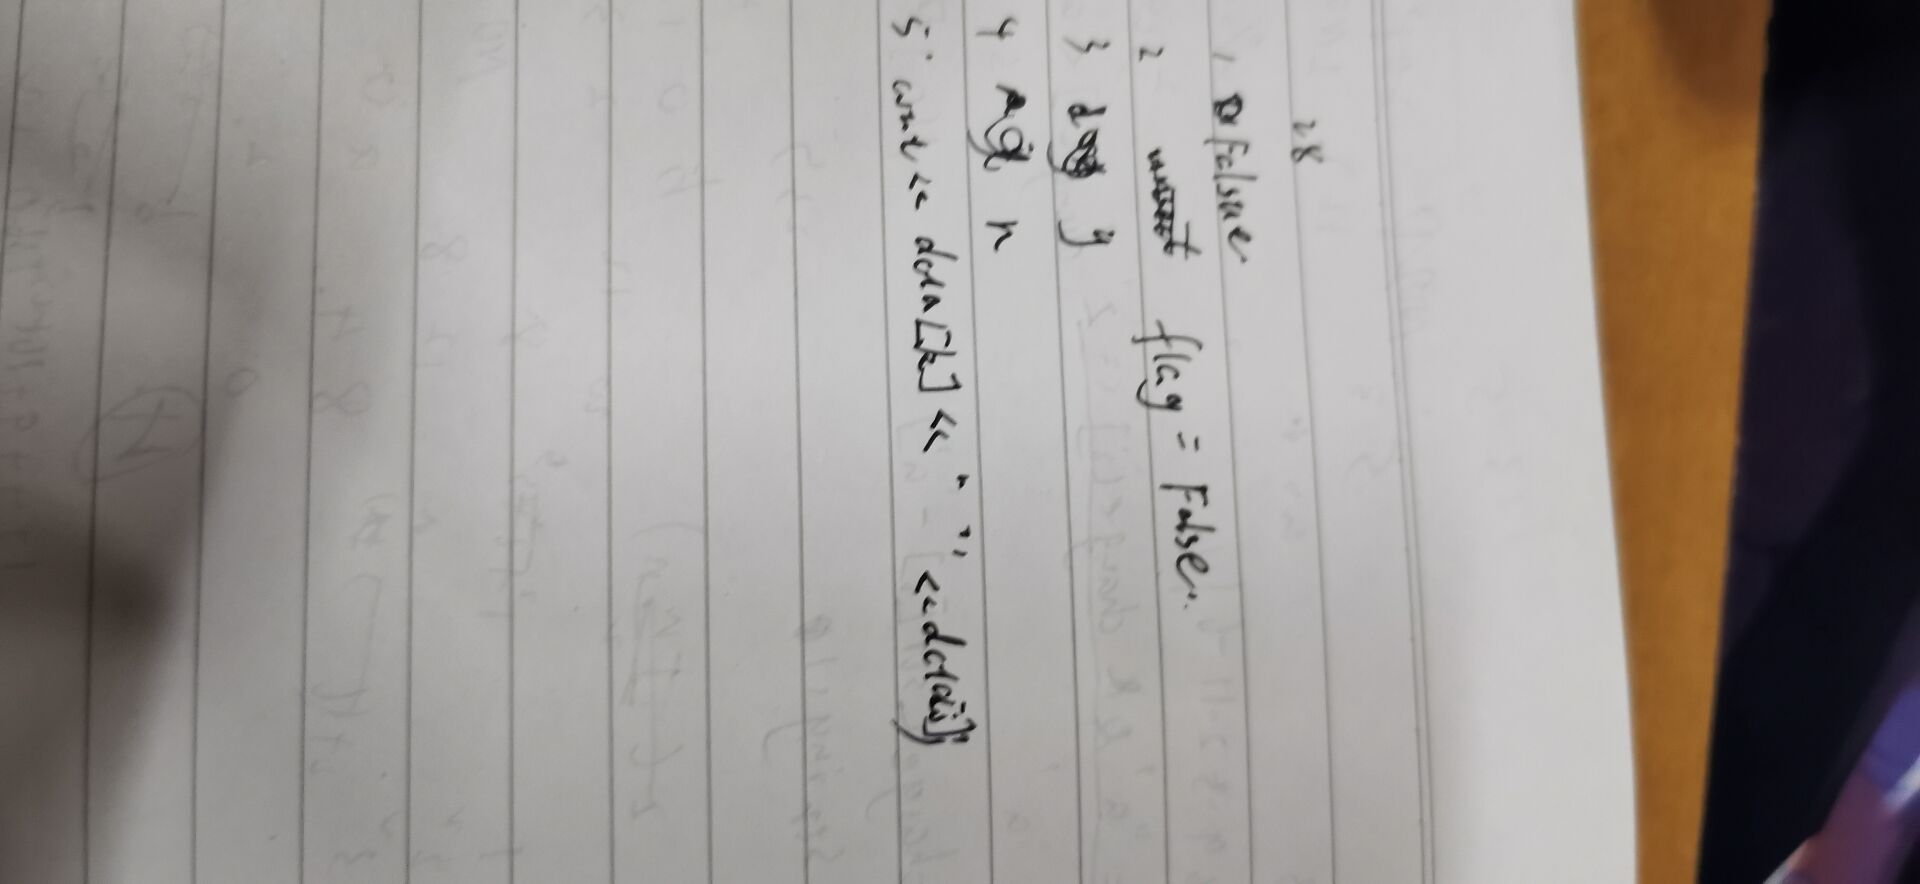 28
1, Falsue.
2 flag = False.
3 y
4 n
5. cout << data[k] << " " << data[i];